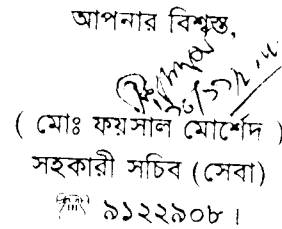 আপনার বিশ্বস্ত,
( মোঃ ফয়সাল মোর্শেদ )
সহকারী সচিব (সেবা)
☎ ৯১২২৯০৮।